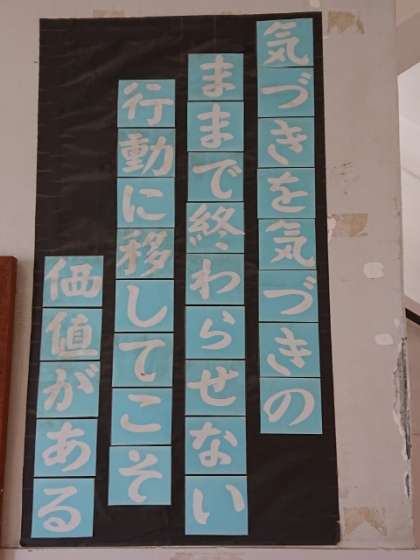 気づきを気づきの
ままで終わらせない
行動に移してこそ
価値がある